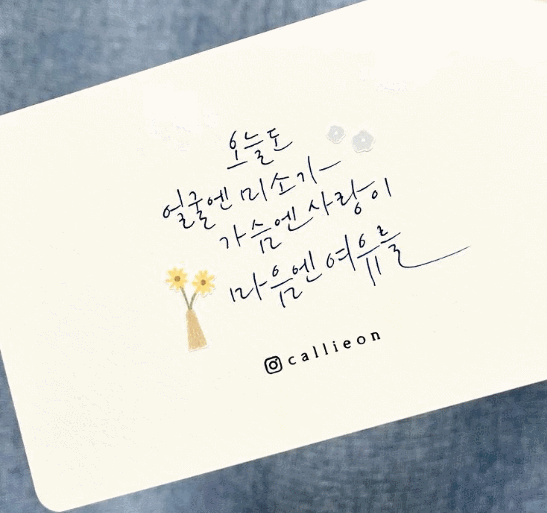 오늘도
얼굴엔 미소가
가슴엔 사랑이
마음엔 여유를
callieon